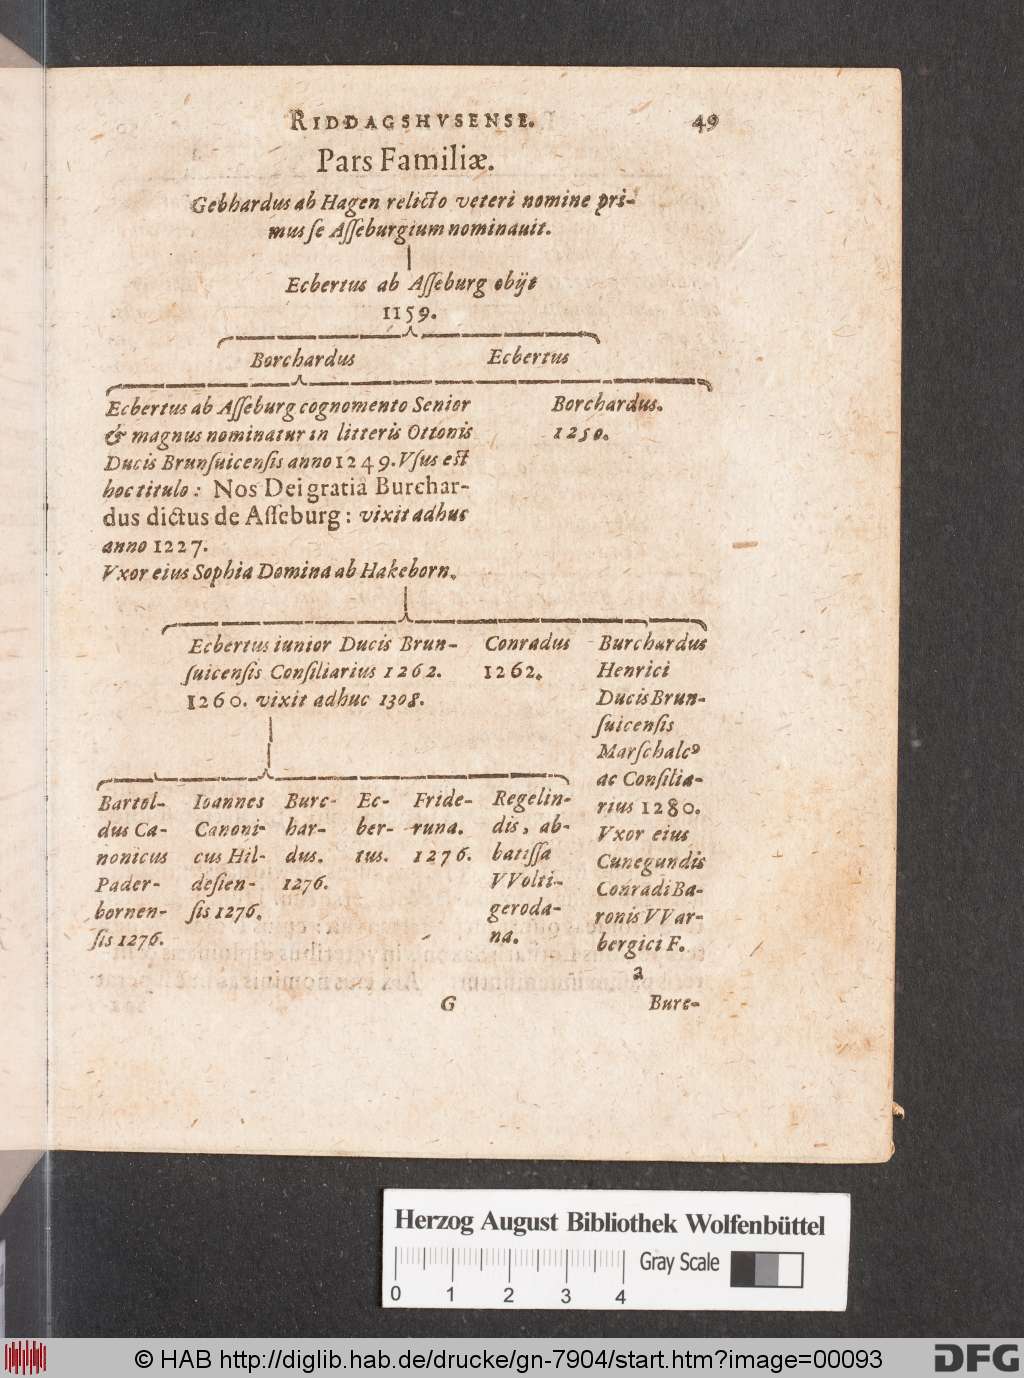 RIDDAGSHVSENSE. 49
Pars Familiæ.
Gebhardus ab Hagen relicto veteri nomine pri-
mus ſe Aſſeburgium nominauit.
Ecbertus ab Aſſeburg obijt
1159.
Borchardus Ecbertus
Ecbertus ab Aſſeburg cognomento Senior
& magnus nominatur in litteris Ottonis
Ducis Brunſuicenſis anno 1249. Vſus eſt
hoc titulo: Nos Dei gratia Burchar-
dus dictus de Aſſeburg: vixit adhuc
anno 1227.
Vxor eius Sophia Domina ab Hakeborn.
Borchardus.
1250.
Ecbertus iunior Ducis Brun-
ſuicenſis Conſiliarius 1262.
1260. vixit adhuc 1308.
Conradus
1262.
Burchardus
Henrici
Ducis Brun-
ſuicenſis
Marſchalcꝰ
ac Conſilia-
rius 1280.
Vxor eius
Cunegundis
Conradi Ba-
ronis VVar-
bergici F.
Bartol-
dus Ca-
nonicus
Pader-
bornen-
ſis 1276.
Ioannes
Canoni-
cus Hil-
deſien-
ſis 1276.
Burc-
har-
dus.
1276.
Ec-
ber-
tus.
Fride-
runa.
1276.
Regelin-
dis, ab-
batiſſa
VVolti-
geroda-
na.
a
G Burc-
Herzog August Bibliothek Wolfenbüttel
Gray Scale
0 1 2 3 4
© HAB http://diglib.hab.de/drucke/gn-7904/start.htm?image=00093
DFG